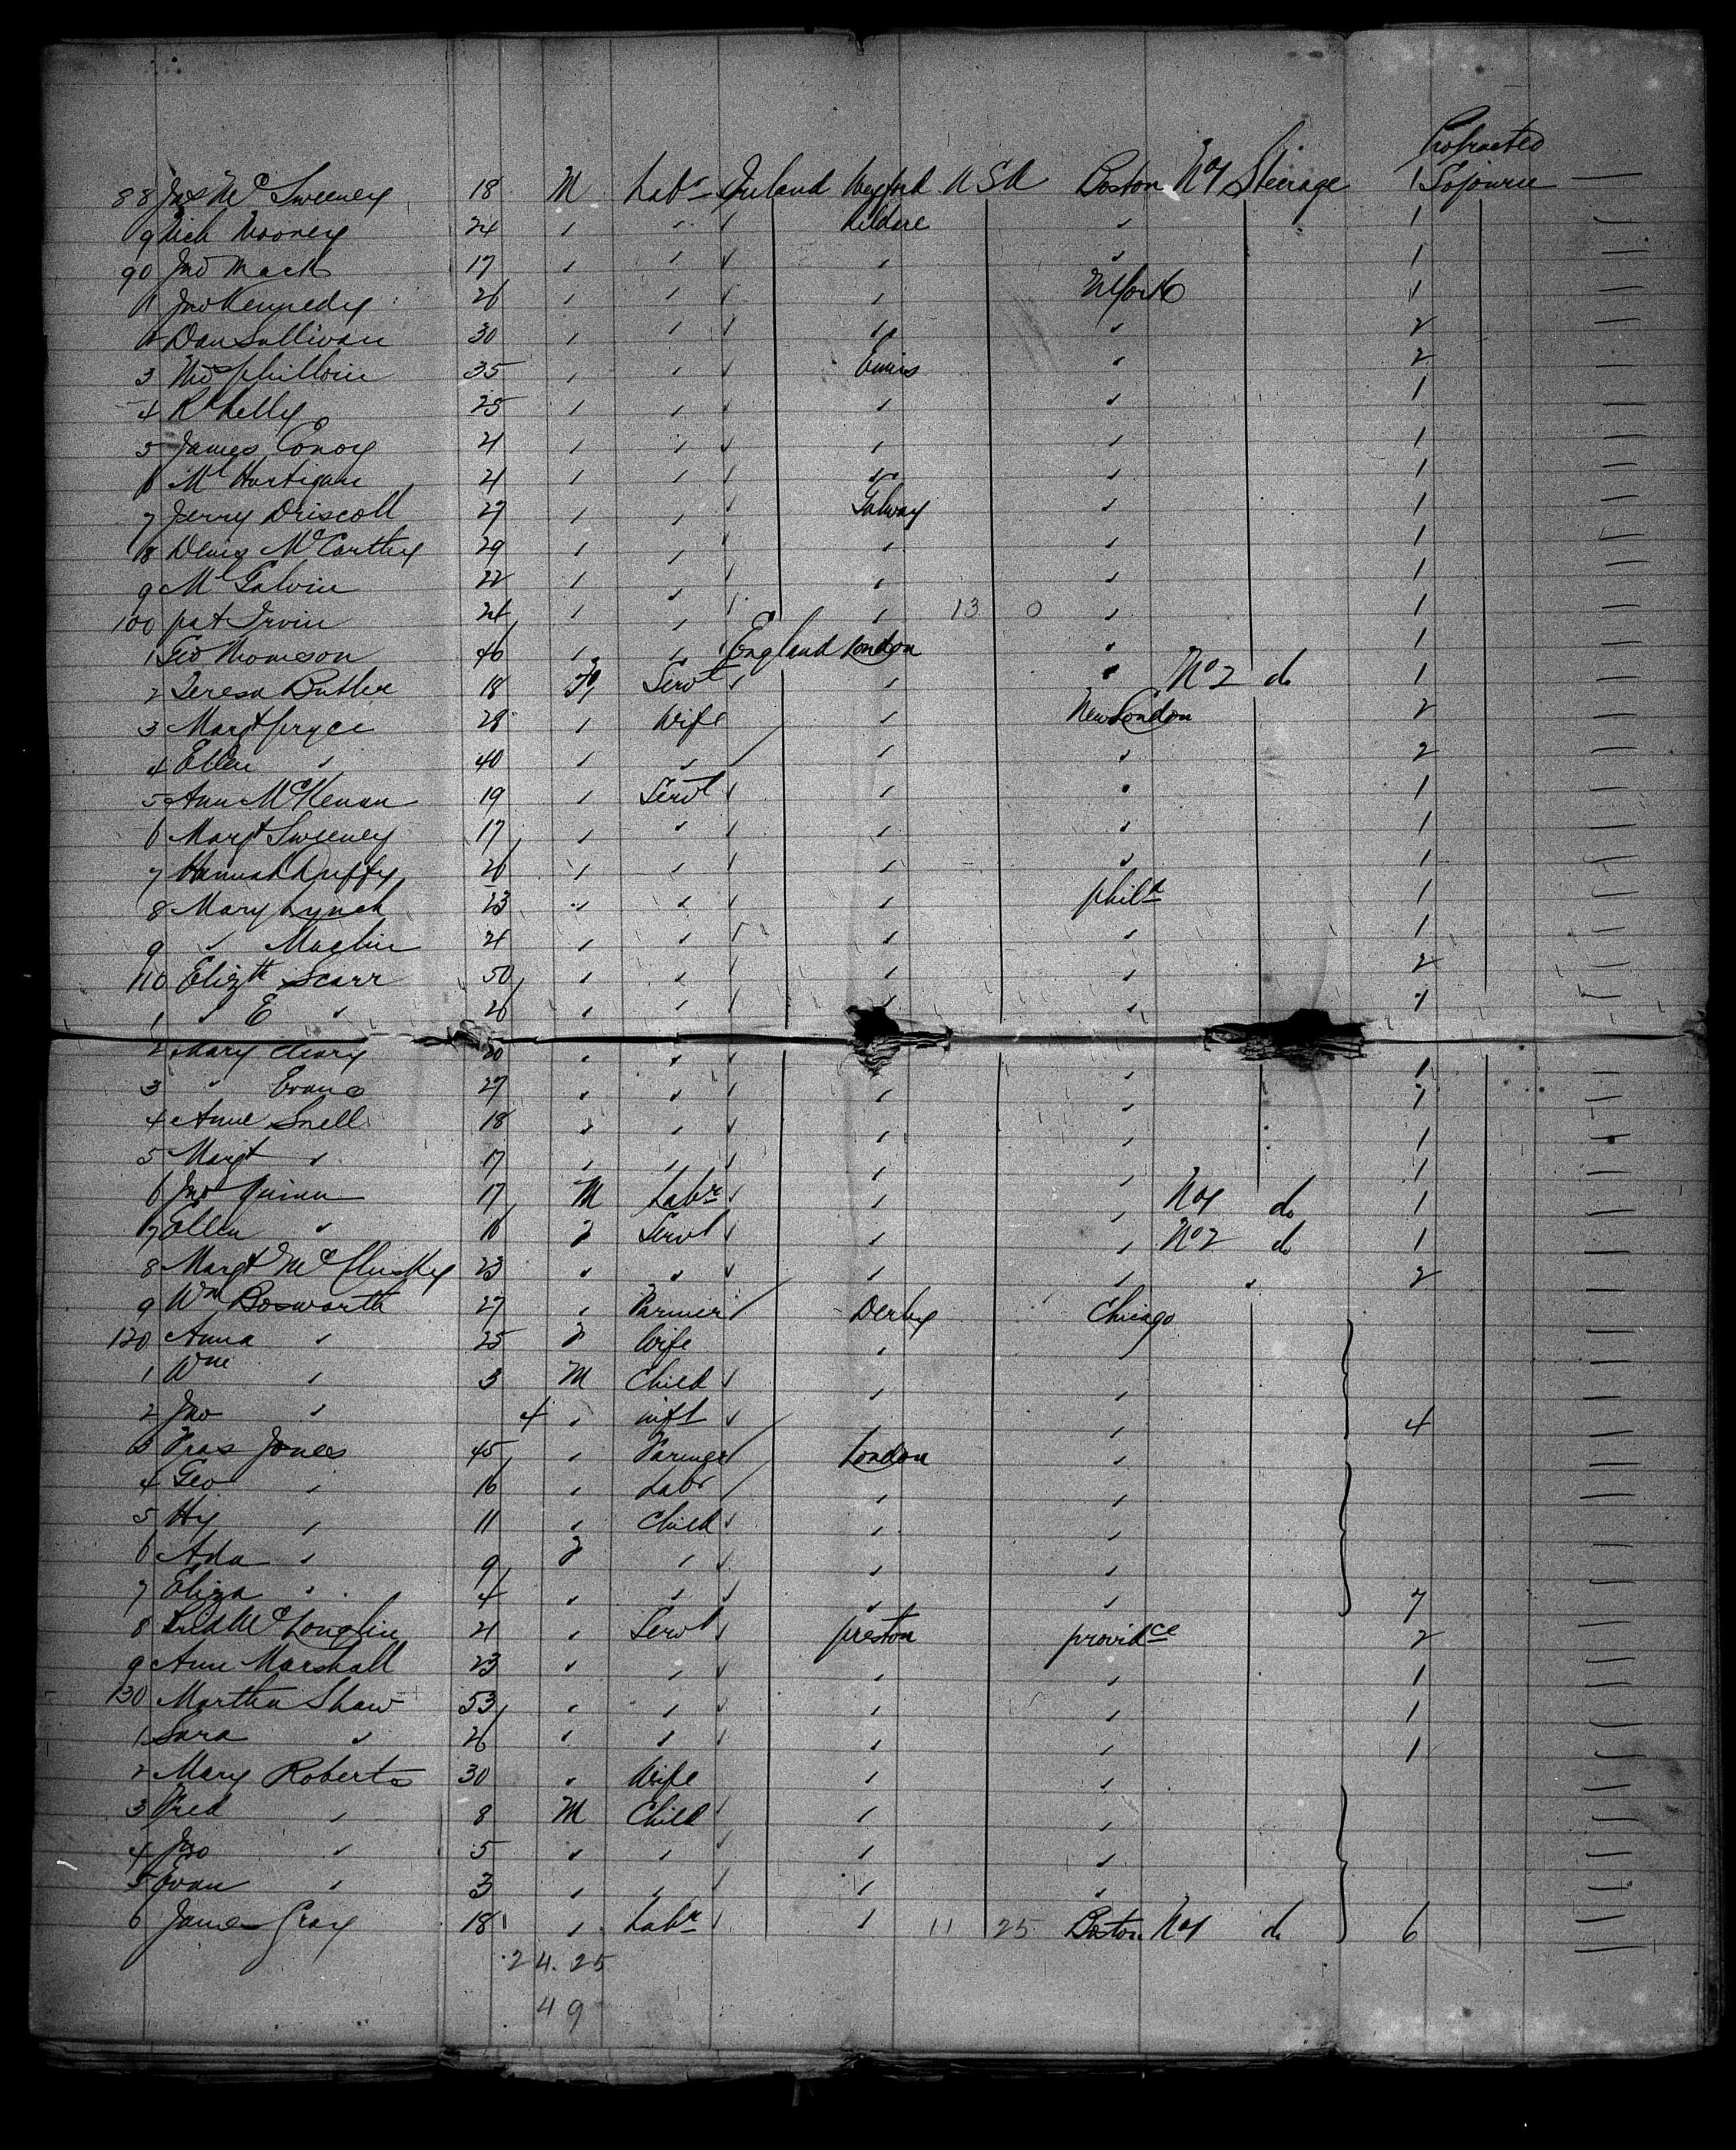 Protracted
88 Jas Mc Sweeney 18 M Labr Ireland Wexford U S A Boston No 1 Steerage 1 Sojourn —
9 Mich Mooney 24 " " " Kildare " 1 —
90 Jno Mack 17 " " " " " 1 —
1 Jno Kennedy 26 " " " " N York 1 —
2 Dan Sullivan 30 " " " " " 2 —
3 35 " " " Ennis " 2 —
4 Rd Kelly 25 " " " " " 1 —
5 James Conoy 21 " " " " " 1 —
6 Ml Hartigan 21 " " " " " 1 —
7 Jerry Driscoll 27 " " " Galway " 1 —
8 Denis McCarthy 29 " " " " " 1 —
9 Ml Galvin 22 " " " " " 1 —
100 pat Irvin 24 " " " " 13 0 " 1 —
1 Geo Thomson 40 " " England London " 1 —
2 Teresa Butler 18 F Servt " " " No 2 do 1 —
3 Margt pryce 28 " Wife " New London 2 —
4 Ellen " 40 " " " " 2 —
5 Ann McKenan 19 " Servt " " " 1 —
6 Margt Sweeney 17 " " " " " 1 —
7 Hannah Duffy 26 " " " " " 1 —
8 Mary Lynch 23 " " " " phila 1 —
9 " Maglin 21 " " " " " 1 —
110 Elizth Scarr 50 " " " " " 2 —
1 " E " 26 " " " " " 1 —
2 Mary Cleary 20 " " " " 1 —
3 " Evans 27 " " " " " 1 —
4 Anne Snell 18 " " " " " 1 —
5 Margt " 17 " " " " " 1 —
6 Jno Quinn 17 M Labr " " " No 1 do 1 —
7 Ellen " 16 F Servt " " " No 2 do 1 —
8 Margt McCluskey 23 " " " " " " 2 —
9 Wm Bosworth 27 " Farmer Derby Chicago —
120 Anna " 25 F Wife " " —
1 Wm " 3 M Child " " " —
2 Jno " 4 " inft " " " 4 —
3 Fras Jones 45 " Farmer London " —
4 Geo " 16 " Labr " " —
5 Hy " 11 " Child " " " —
6 Ada " 9 F " " " " —
7 Eliza " 4 " " " " " 7 —
8 McLonglin 21 " Servt " preston providce 2 —
9 Ann Marshall 23 " " " " " 1 —
130 Martha Shaw 53 " " " " " 1 —
1 Sara " 26 " " " " " 1 —
2 Mary Roberts 30 " Wife " " —
3 Fred " 8 M Child " " " —
4 Jno " 5 " " " " " —
5 Evan " 3 " " " " " —
6 James Gray 18 " Labr " " 11 25 Boston No 1 do 6 —
24.25
49